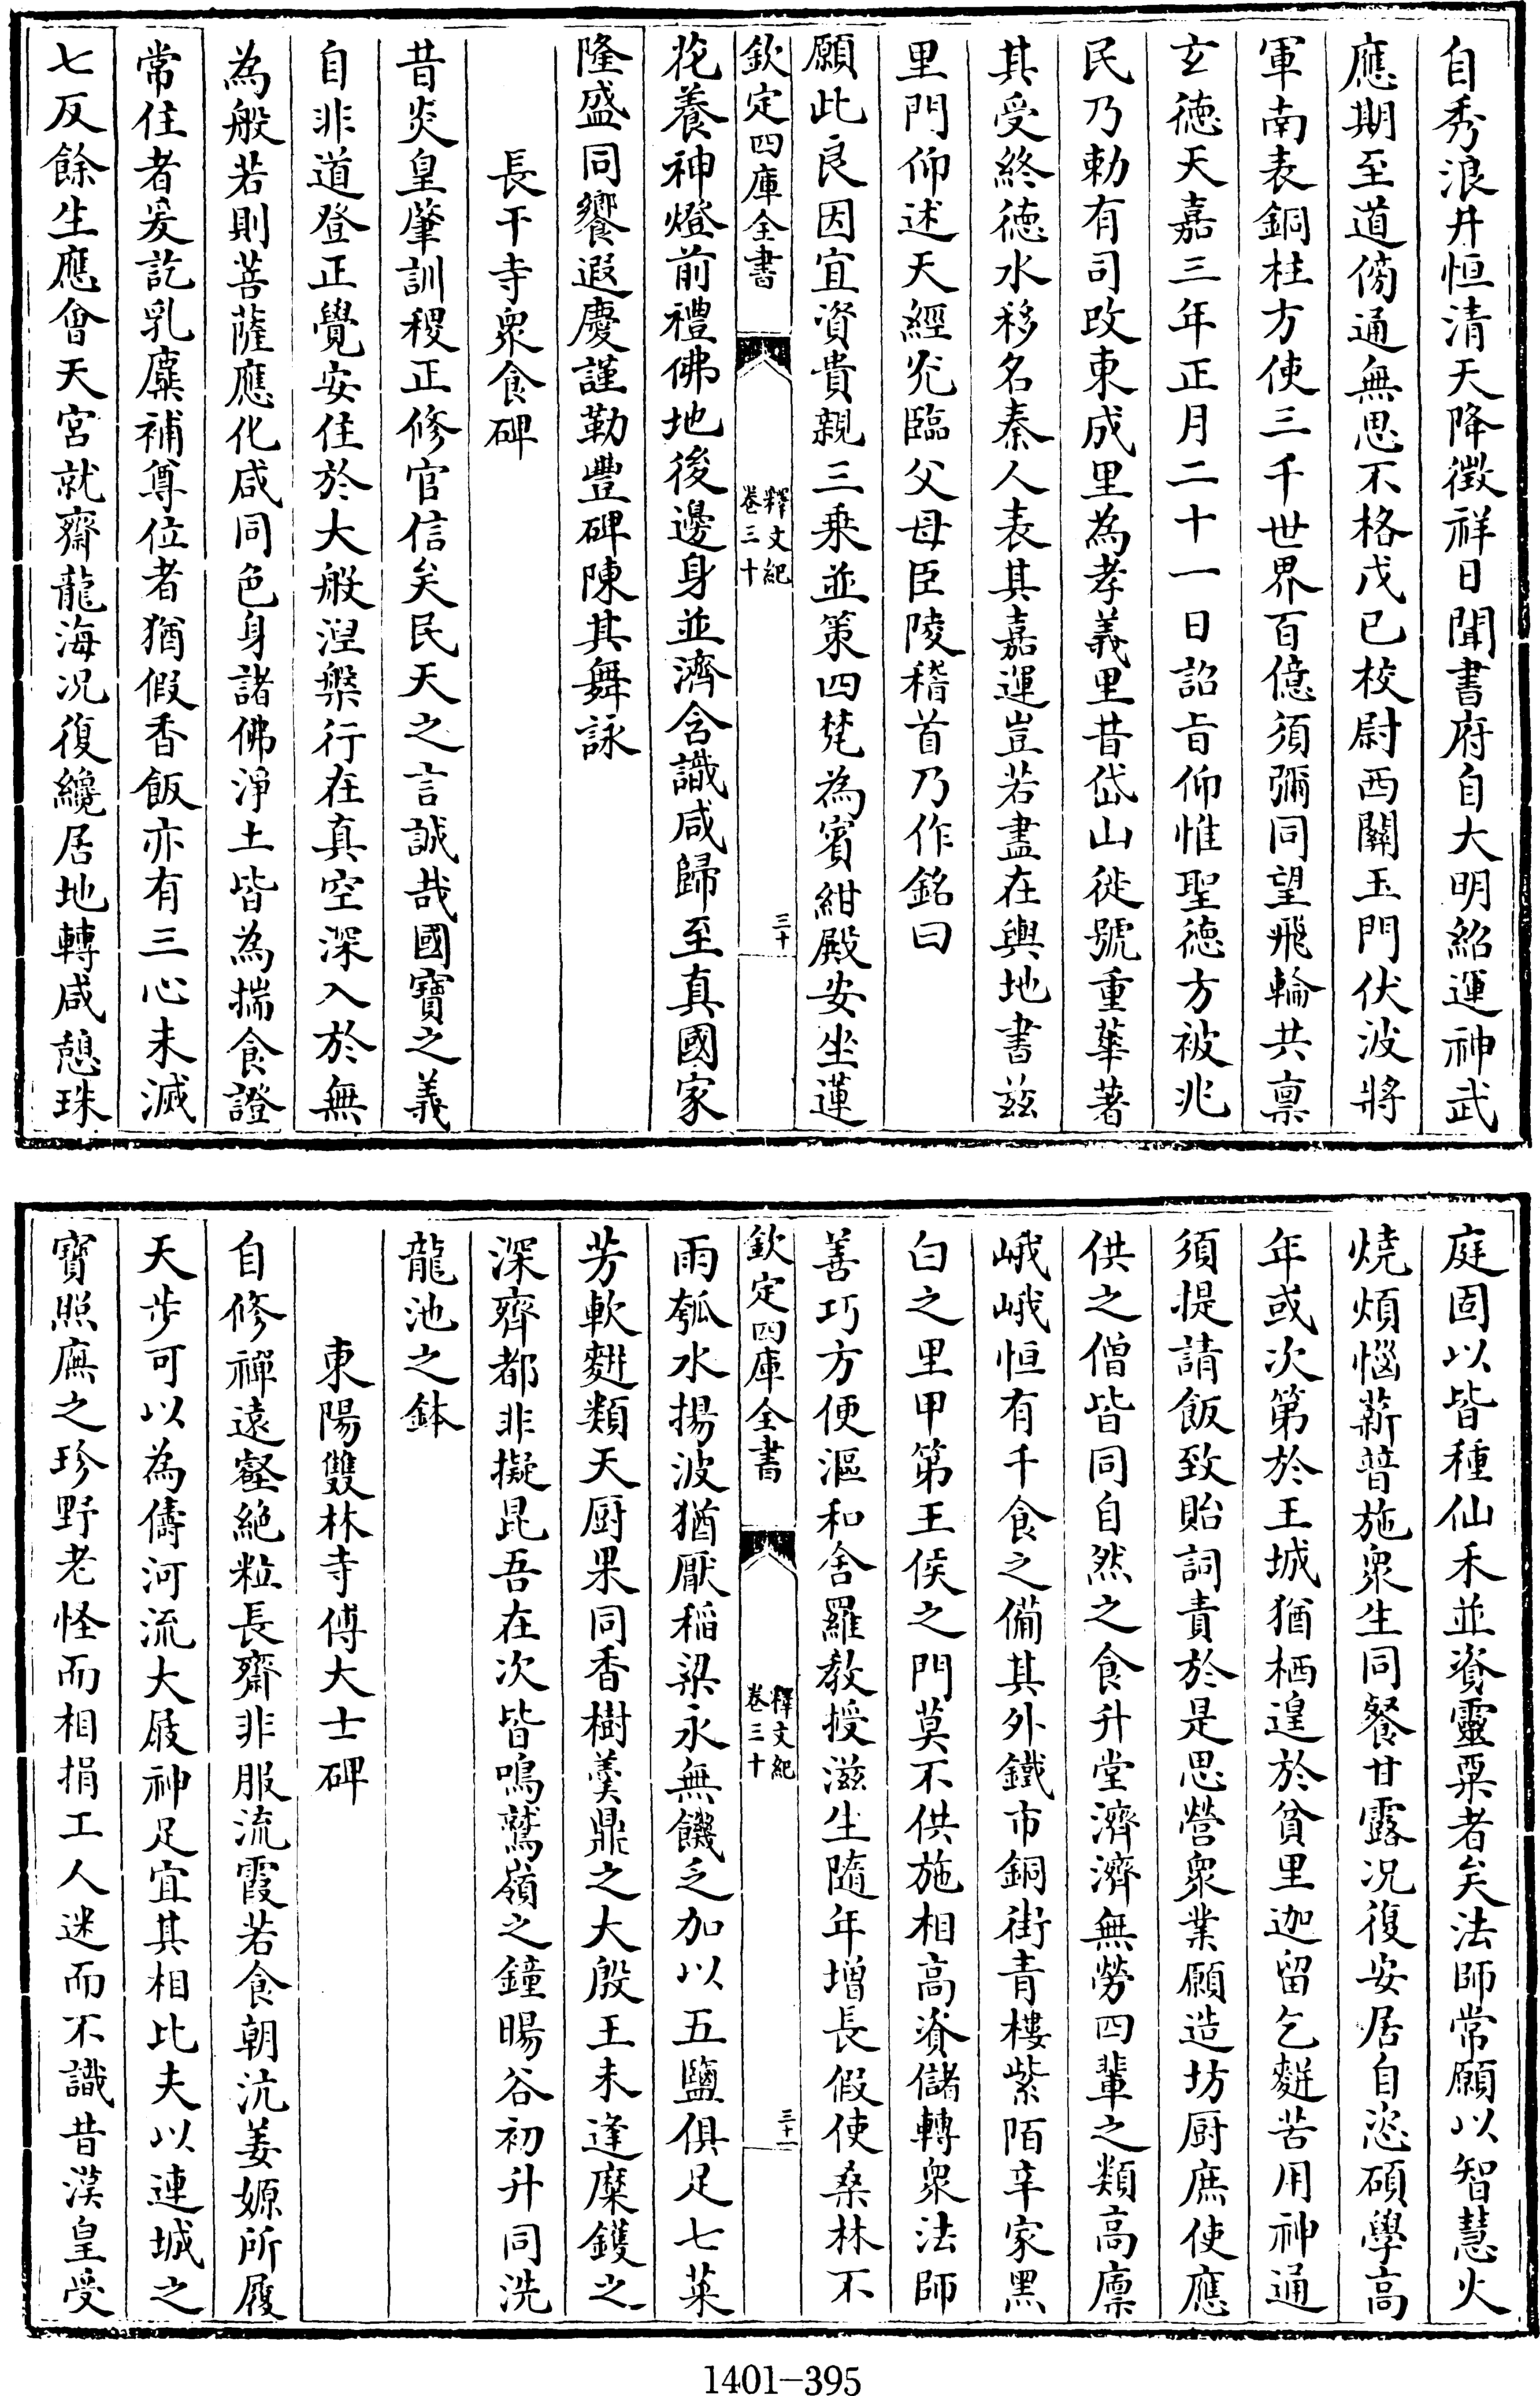 自秀浪井恒清天降徴祥日聞書府自大明紹運神武
應期至道傍通無思不格戊已校尉西關玉門伏波將
軍南表銅柱方使三千世界百億須彌同望飛輪共禀
玄徳天嘉三年正月二十一日詔旨仰惟聖徳方被兆
民乃勅有司改東成里為孝義里昔岱山徙號重華著
其受終徳水移名秦人表其嘉運豈若盡在輿地書兹
里門仰述天經光臨父母臣陵稽首乃作銘曰
願此良因宜資貴親三乗並策四梵為賓紺殿安坐蓮
欽定四庫全書
釋文紀
卷三十
三十
花養神燈前禮佛地後邊身並濟含識咸歸至真國家
隆盛同饗遐慶謹勒豐碑陳其舞詠
長干寺衆食碑
昔炎皇肇訓稷正修官信矣民天之言誠哉國寶之義
自非道登正覺安住於大般涅槃行在真空深入於無
為般若則菩薩應化咸同色身諸佛淨土皆為揣食證
常住者爰訖乳糜補尊位者猶假香飯亦有三心未滅
七反餘生應會天宮就齋龍海况復纔居地轉咸憩珠
庭固以皆種仙禾並資靈粟者矣法師常願以智慧火
燒煩惱薪普施衆生同餐甘露况復安居自恣碩學高
年或次第於王城猶栖遑於貧里迦留乞麨苦用神通
須提請飯致貽詞責於是思營衆業願造坊厨庶使應
供之僧皆同自然之食升堂濟濟無勞四輩之類高廪
峨峨恒有千食之備其外鐵市銅街青樓紫陌辛家黑
白之里甲第王侯之門莫不供施相高資儲轉衆法師
善巧方便漚和舍羅教授滋生隨年增長假使桑林不
欽定四庫全書
釋文紀
卷三十
三十一
雨瓠水揚波猶厭稻粱永無饑乏加以五鹽俱足七菜
芳軟麨類天厨果同香樹羮鼎之大殷王未逢糜鑊之
深齊都非擬昆吾在次皆鳴鷲嶺之鐘暘谷初升同洗
龍池之鉢
東陽雙林寺傅大士碑
自修禪遠壑絶粒長齋非服流霞若食朝沆姜嫄所履
天步可以為儔河流大屐神足宜其相比夫以連城之
寶照廡之珍野老怪而相捐工人迷而不識昔漢皇受
1401-395